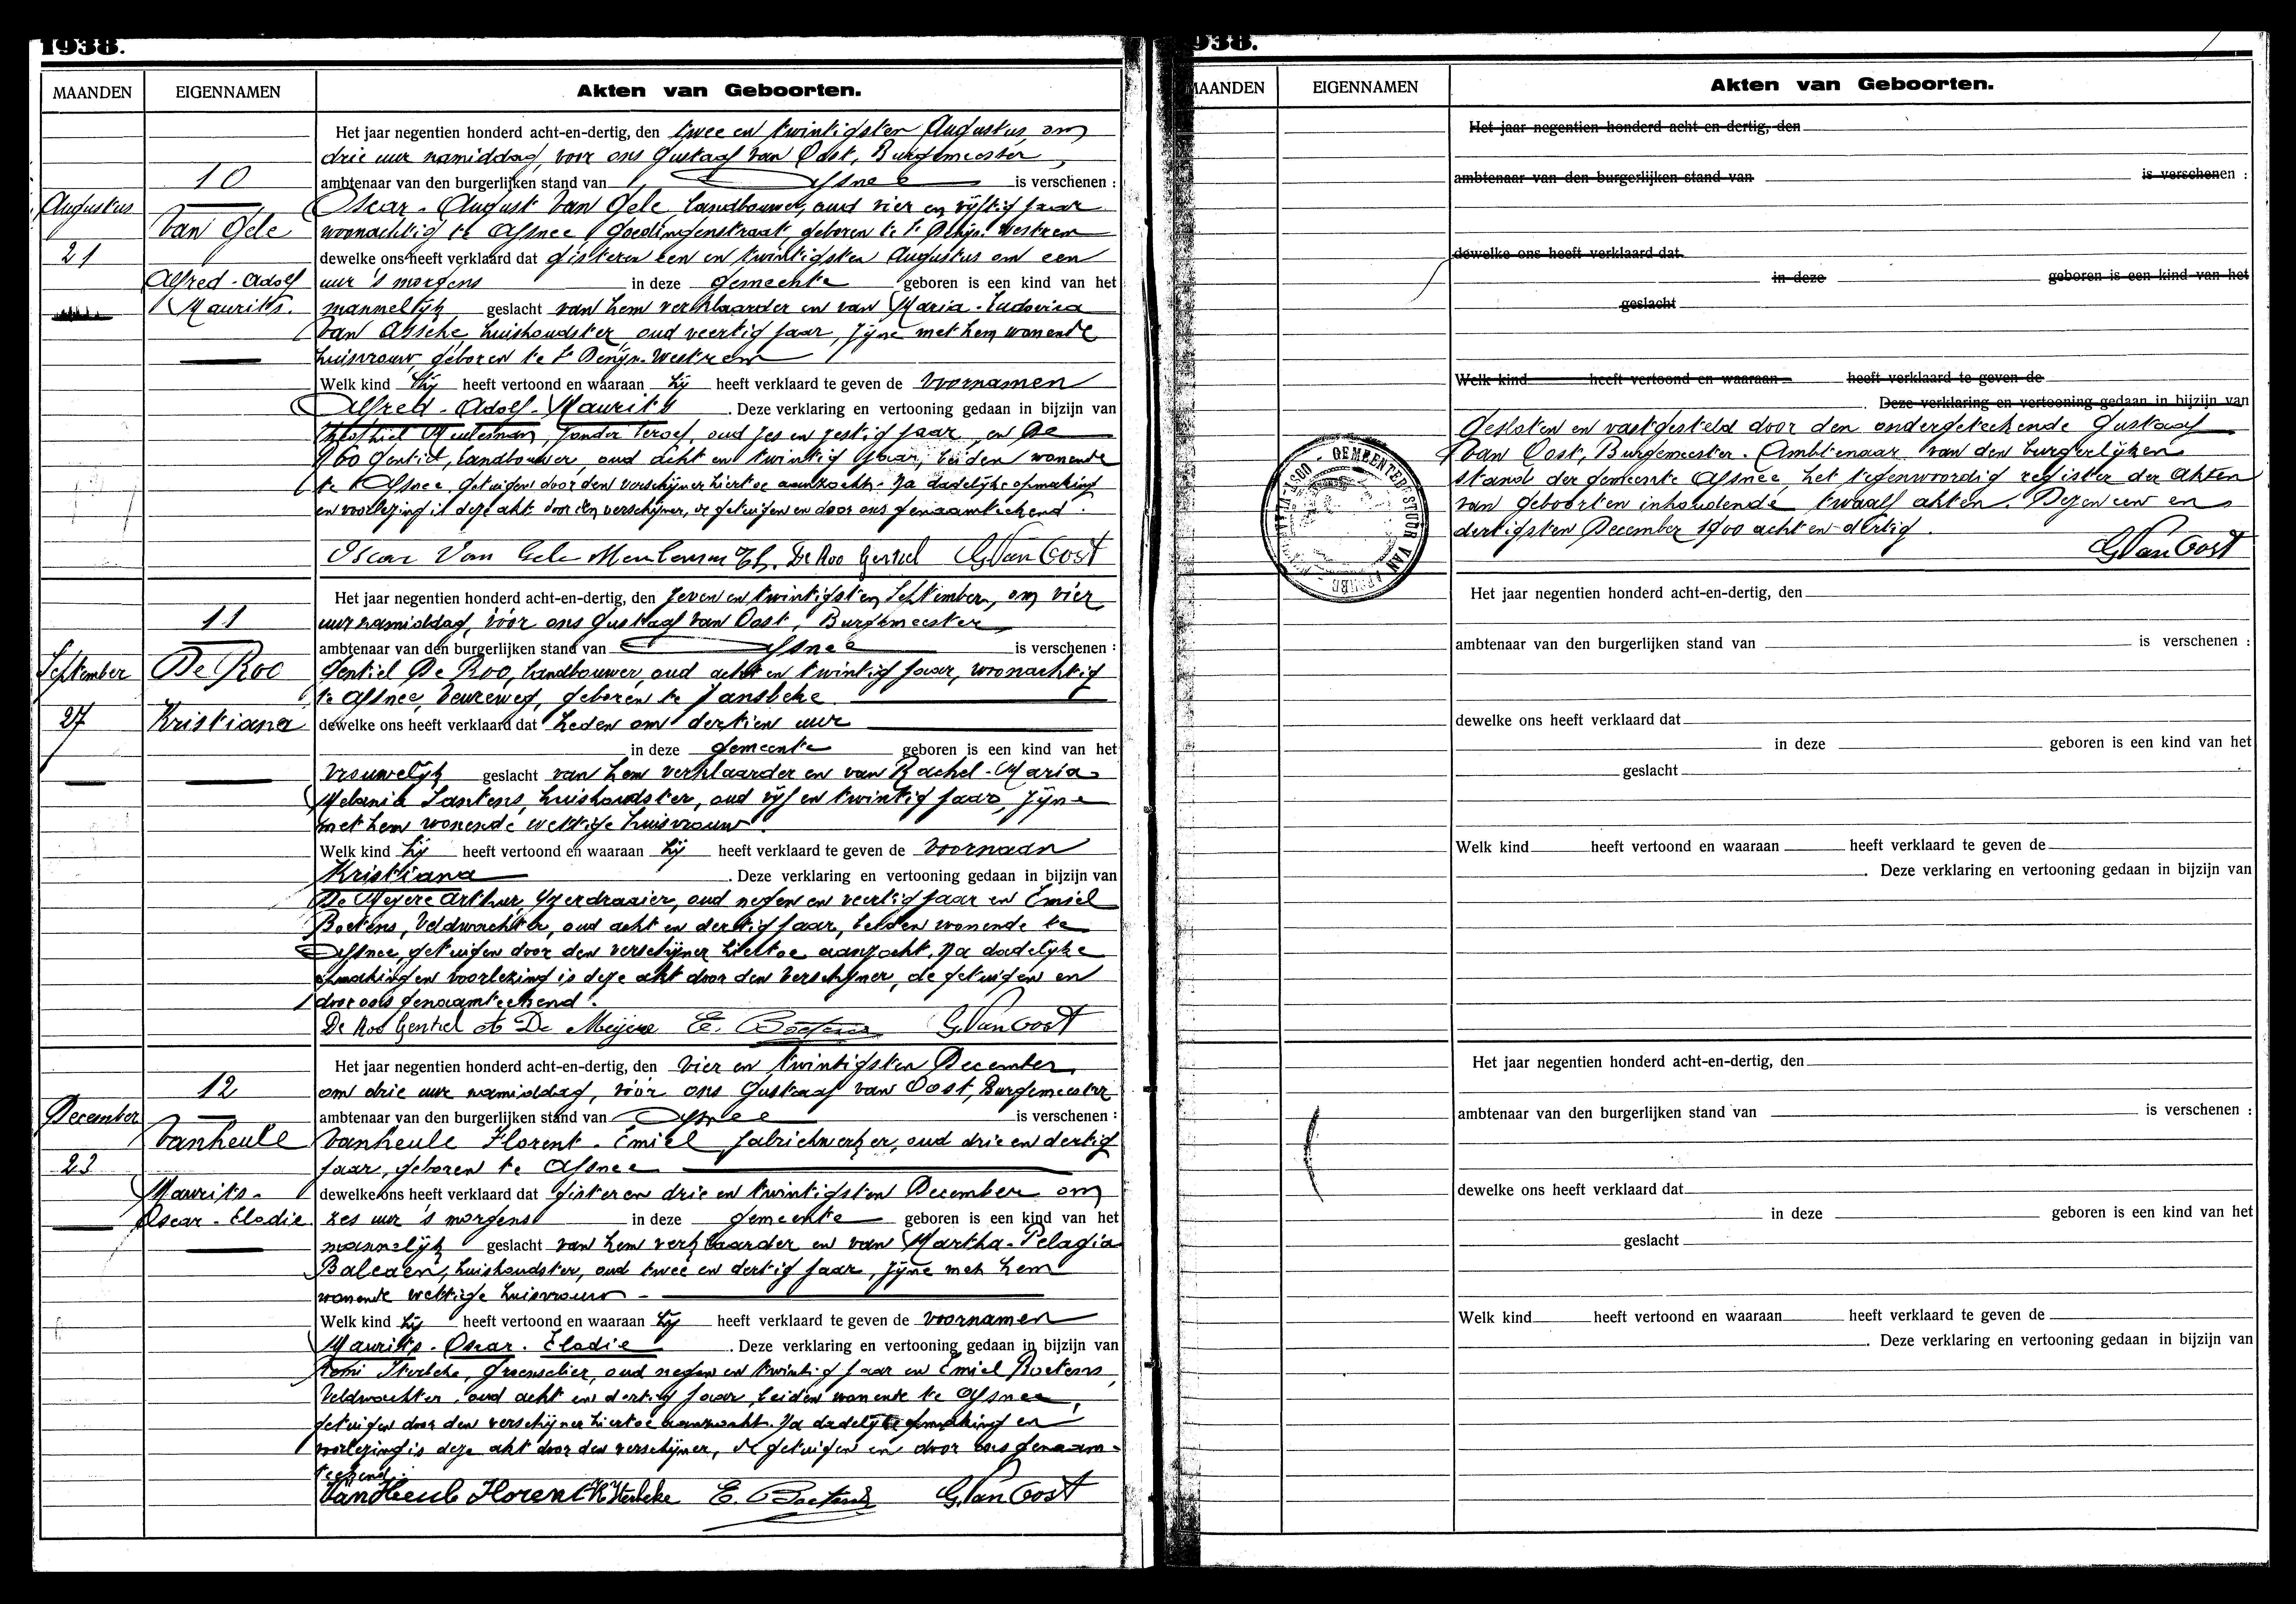 1938.
MAANDEN
EIGENNAMEN
Akten van Geboorten.
10
Augustus
Van Gele
21
Alfred - Adolf
Maurits.
Het jaar negentien honderd acht-en-dertig, den twee en twintigsten Augustus, om
drie uur namiddag, voor ons Gustaaf Van Oost, Burgemeester,
ambtenaar van den burgerlijken stand van Afsnee is verschenen :
Oscar - August Van Gele, landbouwer, oud vier en vijftig jaar
woonachtig te Afsnee, Goedingenstraat, geboren te St Denijs-Westrem
dewelke ons heeft verklaard dat gisteren een en twintigsten Augustus om een
uur 's morgens in deze gemeente geboren is een kind van het
mannelijk geslacht van hem verklaarder en van Maria - Ludovica
Van Assche, huishoudster, oud veertig jaar, zijne met hem wonende
huisvrouw, geboren te St Denijs-Westrem
Welk kind hij heeft vertoond en waaraan hij heeft verklaard te geven de voornamen
Alfred - Adolf - Maurits. Deze verklaring en vertooning gedaan in bijzijn van
Meuleman, zonder beroep, oud zes en zestig jaar, en De
Roo Gentiel, landbouwer, oud acht en twintig jaar, beiden wonende
te Afsnee, getuigen door den verschijner hiertoe aanzocht. Na dadelijke opmaking
en voorlezing is deze akt door den verschijner, de getuigen en door ons genaamteekend.
Oscar Van Gele Meuleman Th. De Roo Gentiel G. Van Oost
11
September
De Roo
27
Kristiana
Het jaar negentien honderd acht-en-dertig, den zeven en twintigsten September, om vier
uur namiddag, vóór ons Gustaaf Van Oost, Burgemeester,
ambtenaar van den burgerlijken stand van Afsnee is verschenen :
Gentiel De Roo, landbouwer, oud acht en twintig jaar, woonachtig
te Afsnee, Veureweg, geboren te Vansbeke
dewelke ons heeft verklaard dat heden om dertien uur
in deze gemeente geboren is een kind van het
vrouwelijk geslacht van hem verklaarder en van Rachel - Maria
Melania Lantens, huishoudster, oud vijf en twintig jaar, zijne
met hem wonende wettige huisvrouw.
Welk kind hij heeft vertoond en waaraan hij heeft verklaard te geven de voornaam
Kristiana. Deze verklaring en vertooning gedaan in bijzijn van
De Meyere Arthur, ijzerdraaier, oud negen en veertig jaar en Emiel
Boetens, Veldwachter, oud acht en dertig jaar, beiden wonende te
Afsnee, getuigen door den verschijner hiertoe aanzocht. Na dadelijke
opmaking en voorlezing is deze akt door den verschijner, de getuigen en
door ons genaamteekend.
De Roo Gentiel A De Meyere E. Boetens G. Van Oost
12
December
Vanheule
23
Maurits -
Oscar - Elodie
Het jaar negentien honderd acht-en-dertig, den vier en twintigsten December,
om drie uur namiddag, vóór ons Gustaaf Van Oost, Burgemeester
ambtenaar van den burgerlijken stand van Afsnee is verschenen :
Vanheule Florent - Emiel, fabriekwerker, oud drie en dertig
jaar, geboren te Afsnee
dewelke ons heeft verklaard dat gisteren drie en twintigsten December om
zes uur 's morgens in deze gemeente geboren is een kind van het
mannelijk geslacht van hem verklaarder en van Martha - Pelagia
Balcaen, huishoudster, oud twee en dertig jaar, zijne met hem
wonende wettige huisvrouw -
Welk kind hij heeft vertoond en waaraan hij heeft verklaard te geven de voornamen
Maurits - Oscar - Elodie. Deze verklaring en vertooning gedaan in bijzijn van
Remi Sterbeke, oud negen en twintig jaar en Emiel Boetens,
Veldwachter, oud acht en dertig jaar, beiden wonende te Afsnee,
getuigen door den verschijner hiertoe aanzocht. Na dadelijke opmaking en
voorlezing is deze akt door den verschijner, de getuigen en door ons genaam-
teekend.
Van Heule Florent R. Sterbeke E. Boetens G. Van Oost
938.
MAANDEN
EIGENNAMEN
Akten van Geboorten.
Het jaar negentien honderd acht-en-dertig, den
ambtenaar van den burgerlijken stand van is verschenen :
dewelke ons heeft verklaard dat
in deze geboren is een kind van het
geslacht
Welk kind heeft vertoond en waaraan heeft verklaard te geven de
. Deze verklaring en vertooning gedaan in bijzijn van
Gesloten en vastgesteld door den ondergeteekende Gustaaf
Van Oost, Burgemeester - Ambtenaar van den burgerlijken
stand der gemeente Afsnee, het tegenwoordig register der Akten
van geboorten inhoudende twaalf akten. Dezen een en
dertigsten December 1900 acht en dertig.
G. Van Oost
GEMEENTEBESTUUR VAN AFSNEE
Het jaar negentien honderd acht-en-dertig, den
ambtenaar van den burgerlijken stand van is verschenen :
dewelke ons heeft verklaard dat
in deze geboren is een kind van het
geslacht
Welk kind heeft vertoond en waaraan heeft verklaard te geven de
. Deze verklaring en vertooning gedaan in bijzijn van
Het jaar negentien honderd acht-en-dertig, den
ambtenaar van den burgerlijken stand van is verschenen :
dewelke ons heeft verklaard dat
in deze geboren is een kind van het
geslacht
Welk kind heeft vertoond en waaraan heeft verklaard te geven de
. Deze verklaring en vertooning gedaan in bijzijn van